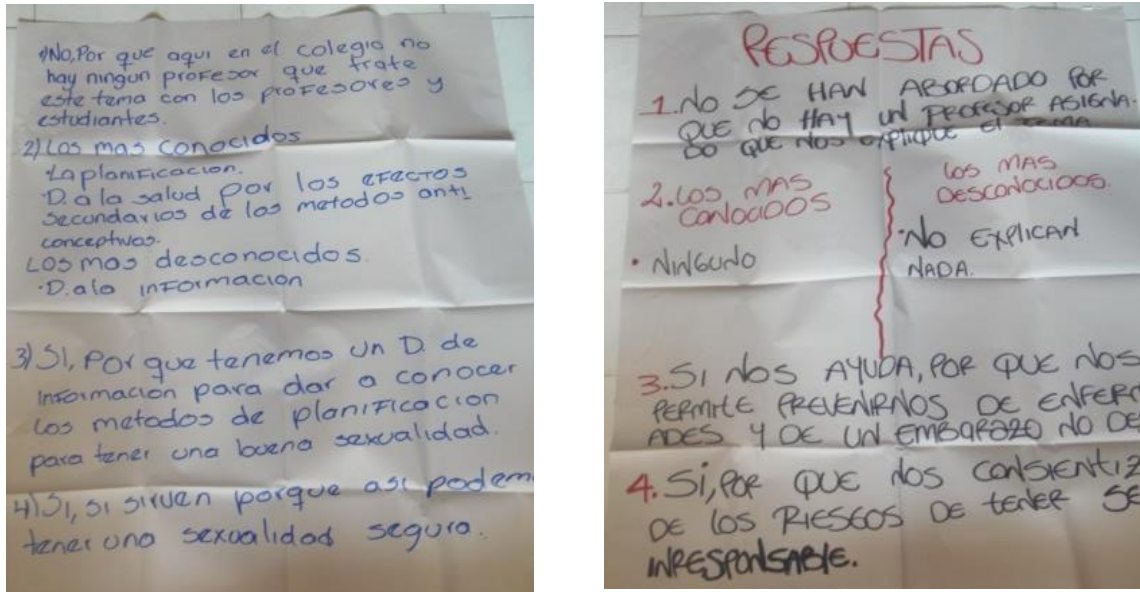 1)No, Por que aqui en el colegio no
hay ningun profesor que trate
este tema con los profesores y
estudiantes.
2) Los mas conocidos
·La planificacion.
·D. a la salud por los efectos
secundarios de los metodos anti
conceptivos.
Los mas desconocidos.
·D. a la informacion
3) SI, Por que tenemos un D. de
informacion para dar a conocer
los metodos de planificacion
para tener una buena sexualidad.
4) SI, si sirven porque asi podem
tener una sexualidad segura.
RESPUESTAS
1. NO SE HAN ABORDADO POR
QUE NO HAY UN PROFESOR ASIGNA-
DO QUE NOS EXPLIQUE El TEMA
2. LOS MAS
CONOCIDOS
• NINGUNO
LOS MAS
DESCONOCIDOS.
·NO EXPLICAN
NADA.
3. SI NOS AYUDA, POR QUE NOS
PERMITE PREVENIRNOS DE ENFERM
ADES Y DE UN EMBARAZO NO DE
4. Si, POR QUE NOS CONSIENTIZ
DE LOS RIESGOS DE TENER SE
INRESPONSABLE.